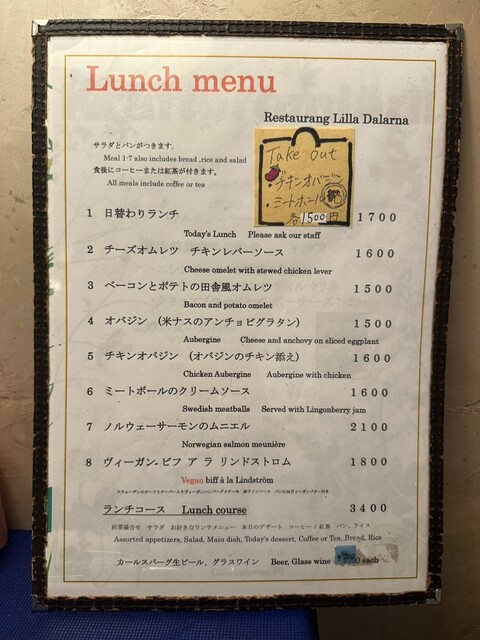 Lunch menu
Restaurang Lilla Dalarna
サラダとパンがつきます.
Meal 1-7 also includes bread ,rice and salad
食後にコーヒーまたは紅茶が付きます。
All meals include coffee or tea
Take out
・チキンオバジーン
・ミートボール
各1500円
1 日替わりランチ 1700
Today's Lunch Please ask our staff
2 チーズオムレツ チキンレバーソース 1600
Cheese omelet with stewed chicken lever
3 ベーコンとポテトの田舎風オムレツ 1500
Bacon and potato omelet
4 オバジン (米ナスのアンチョビグラタン) 1500
Aubergine Cheese and anchovy on sliced eggplant
5 チキンオバジン (オバジンのチキン添え) 1600
Chicken Aubergine Aubergine with chicken
6 ミートボールのクリームソース 1600
Swedish meatballs Served with Lingonberry jam
7 ノルウェーサーモンのムニエル 2100
Norwegian salmon meunière
8 ヴィーガン- ビフ ア ラ リンドストロム 1800
Vegan biff à la Lindström
ランチコース Lunch course 3400
前菜盛合せ サラダ お好きなランチメニュー 本日のデザート コーヒー / 紅茶 パン、ライス
Assorted appetizers, Salad, Main dish, Today's dessert, Coffee or Tea, Bread, Rice
カールスバーグ生ビール、グラスワイン Beer, Glass wine each